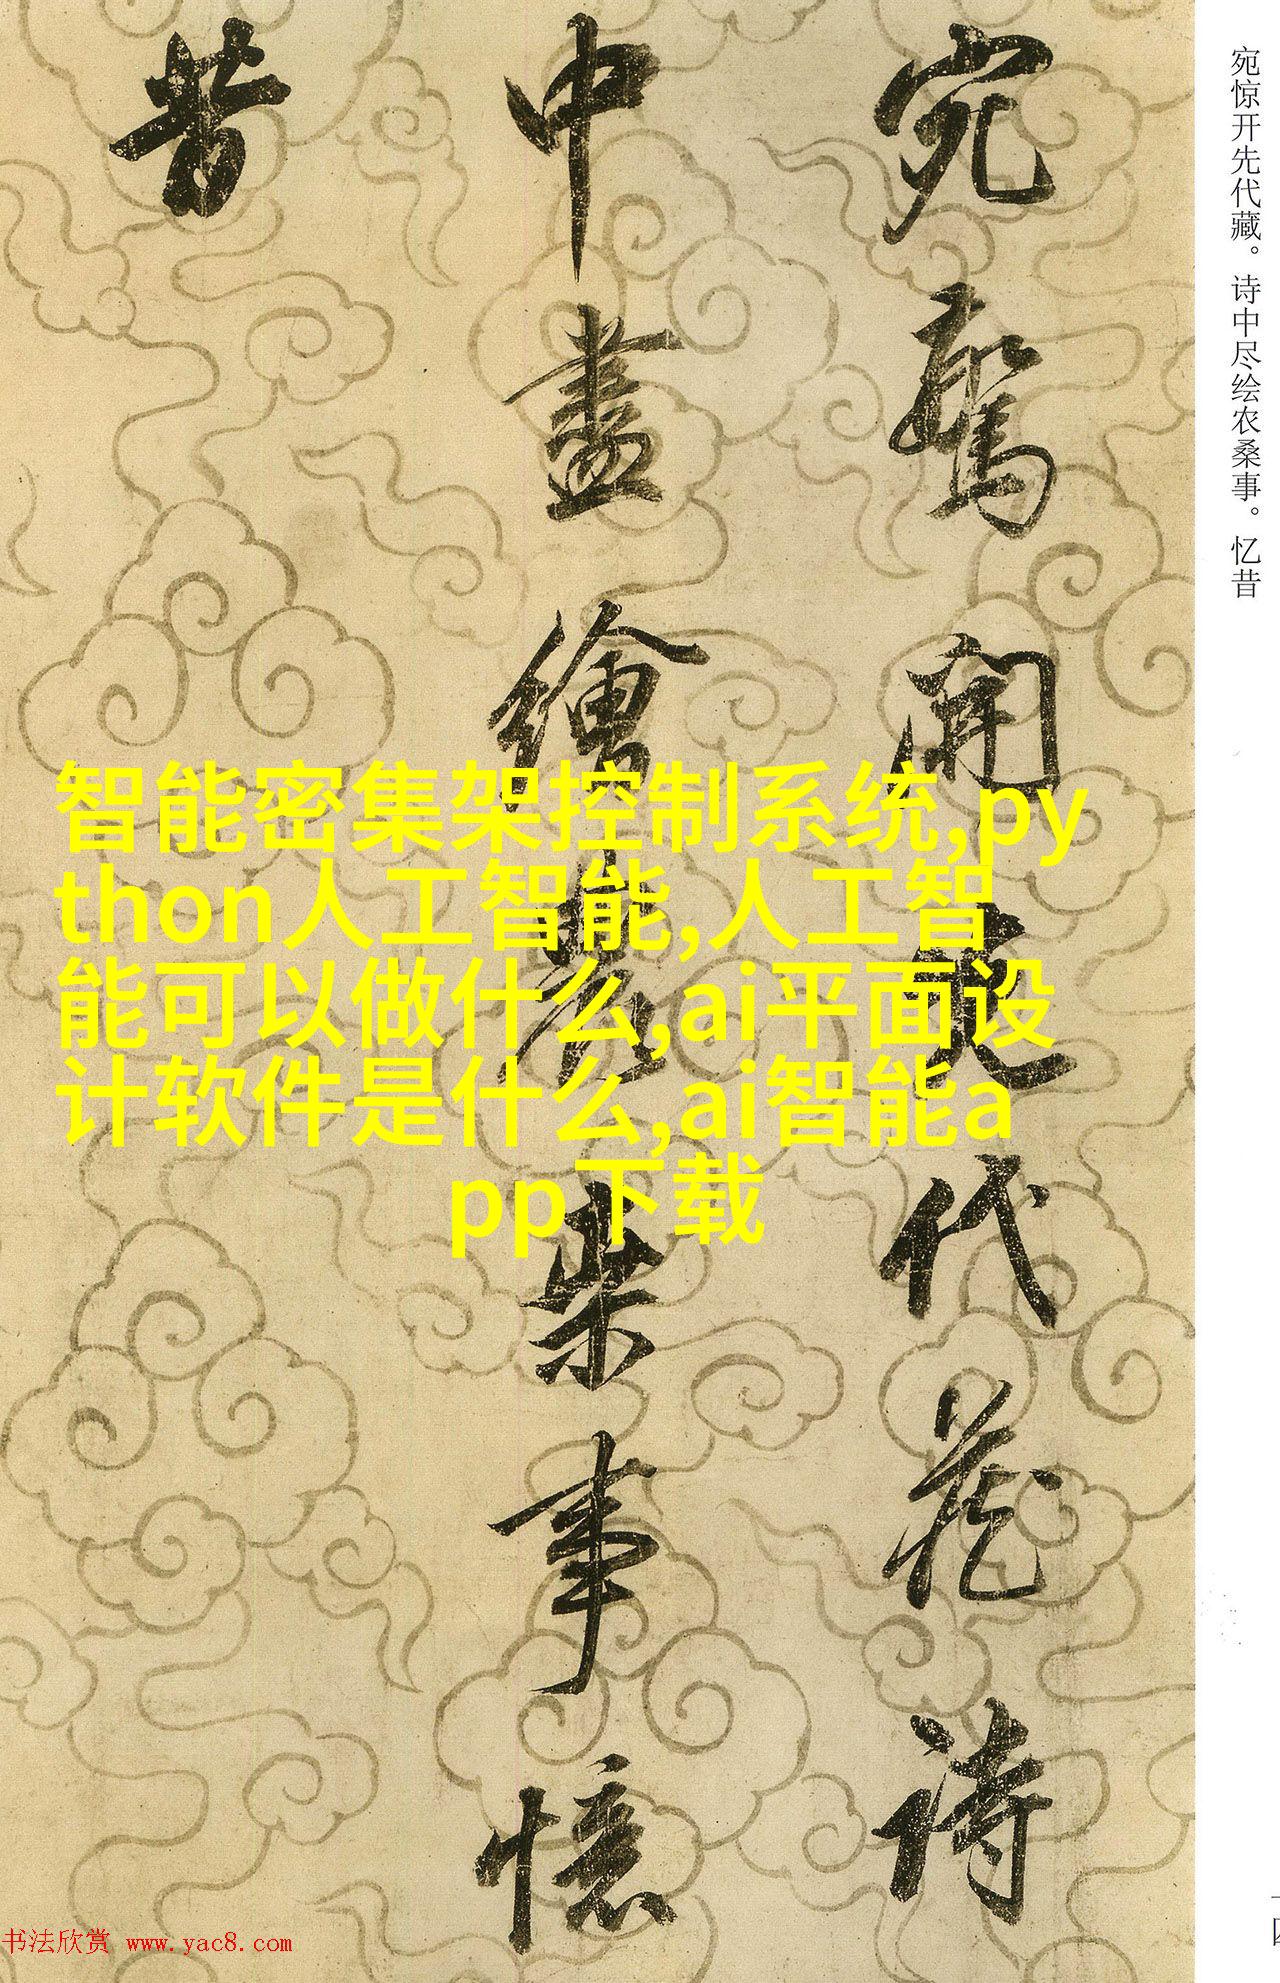 宛惊开先代藏。诗中尽绘农桑事。忆昔
宛驚開先代藏詩
中盡繪農桒事憶
昔
智能密集架控制系统,py
thon人工智能,人工智
能可以做什么,ai平面设
计软件是什么,ai智能a
pp下载
书法欣赏 www.yac8.com